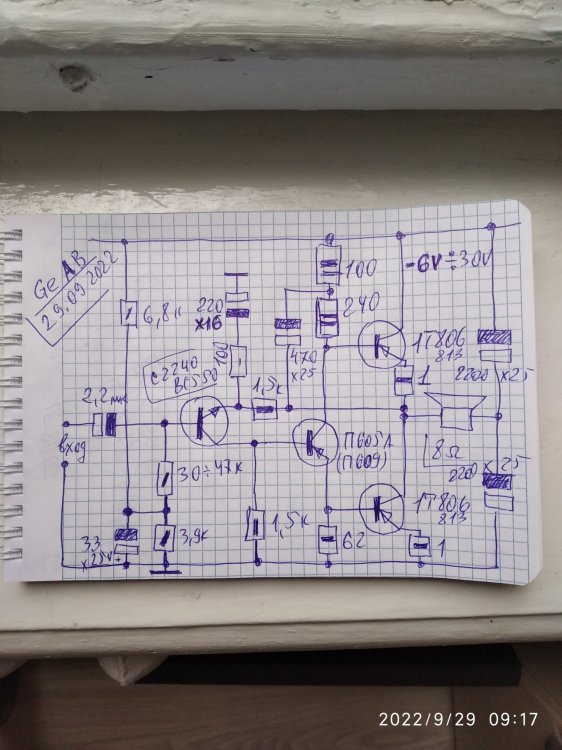 Ge AB
29.09.2022
6,8к
220
x16
100
C2240
BC550
1,5к
100
240
470
x25
-6V÷30V
1Т806
813
1
2200 x25
2,2мк
вход
П605А
(П609)
8Ω
2200 x 25
30÷47к
1Т806
813
33
x25V
+
3,9к
1,5к
62
1
2022/9/29 09:17